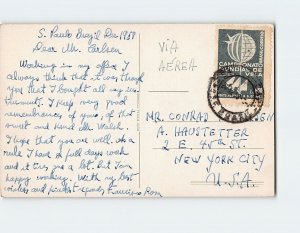 S. Paulo Brazil Dec 1959
Dear Mr. Carlsen
Working in my office I
always think that it was through
you that I bought all my in-
strument. I keep very good
remembrances of you, of that
sweet and kind Mr. Walsh.
I hope that you are well. As a
rule I have a full days work
and it tires me a lot but I am
happy working. With my best
wishes and kindest regards,
Francisco
VIA
AEREA
CAMPEONATO
MUNDIAL DE
MR. CONRAD
A. HAUSTETTER
2 E. 45th ST.
NEW YORK CITY
U.S.A.